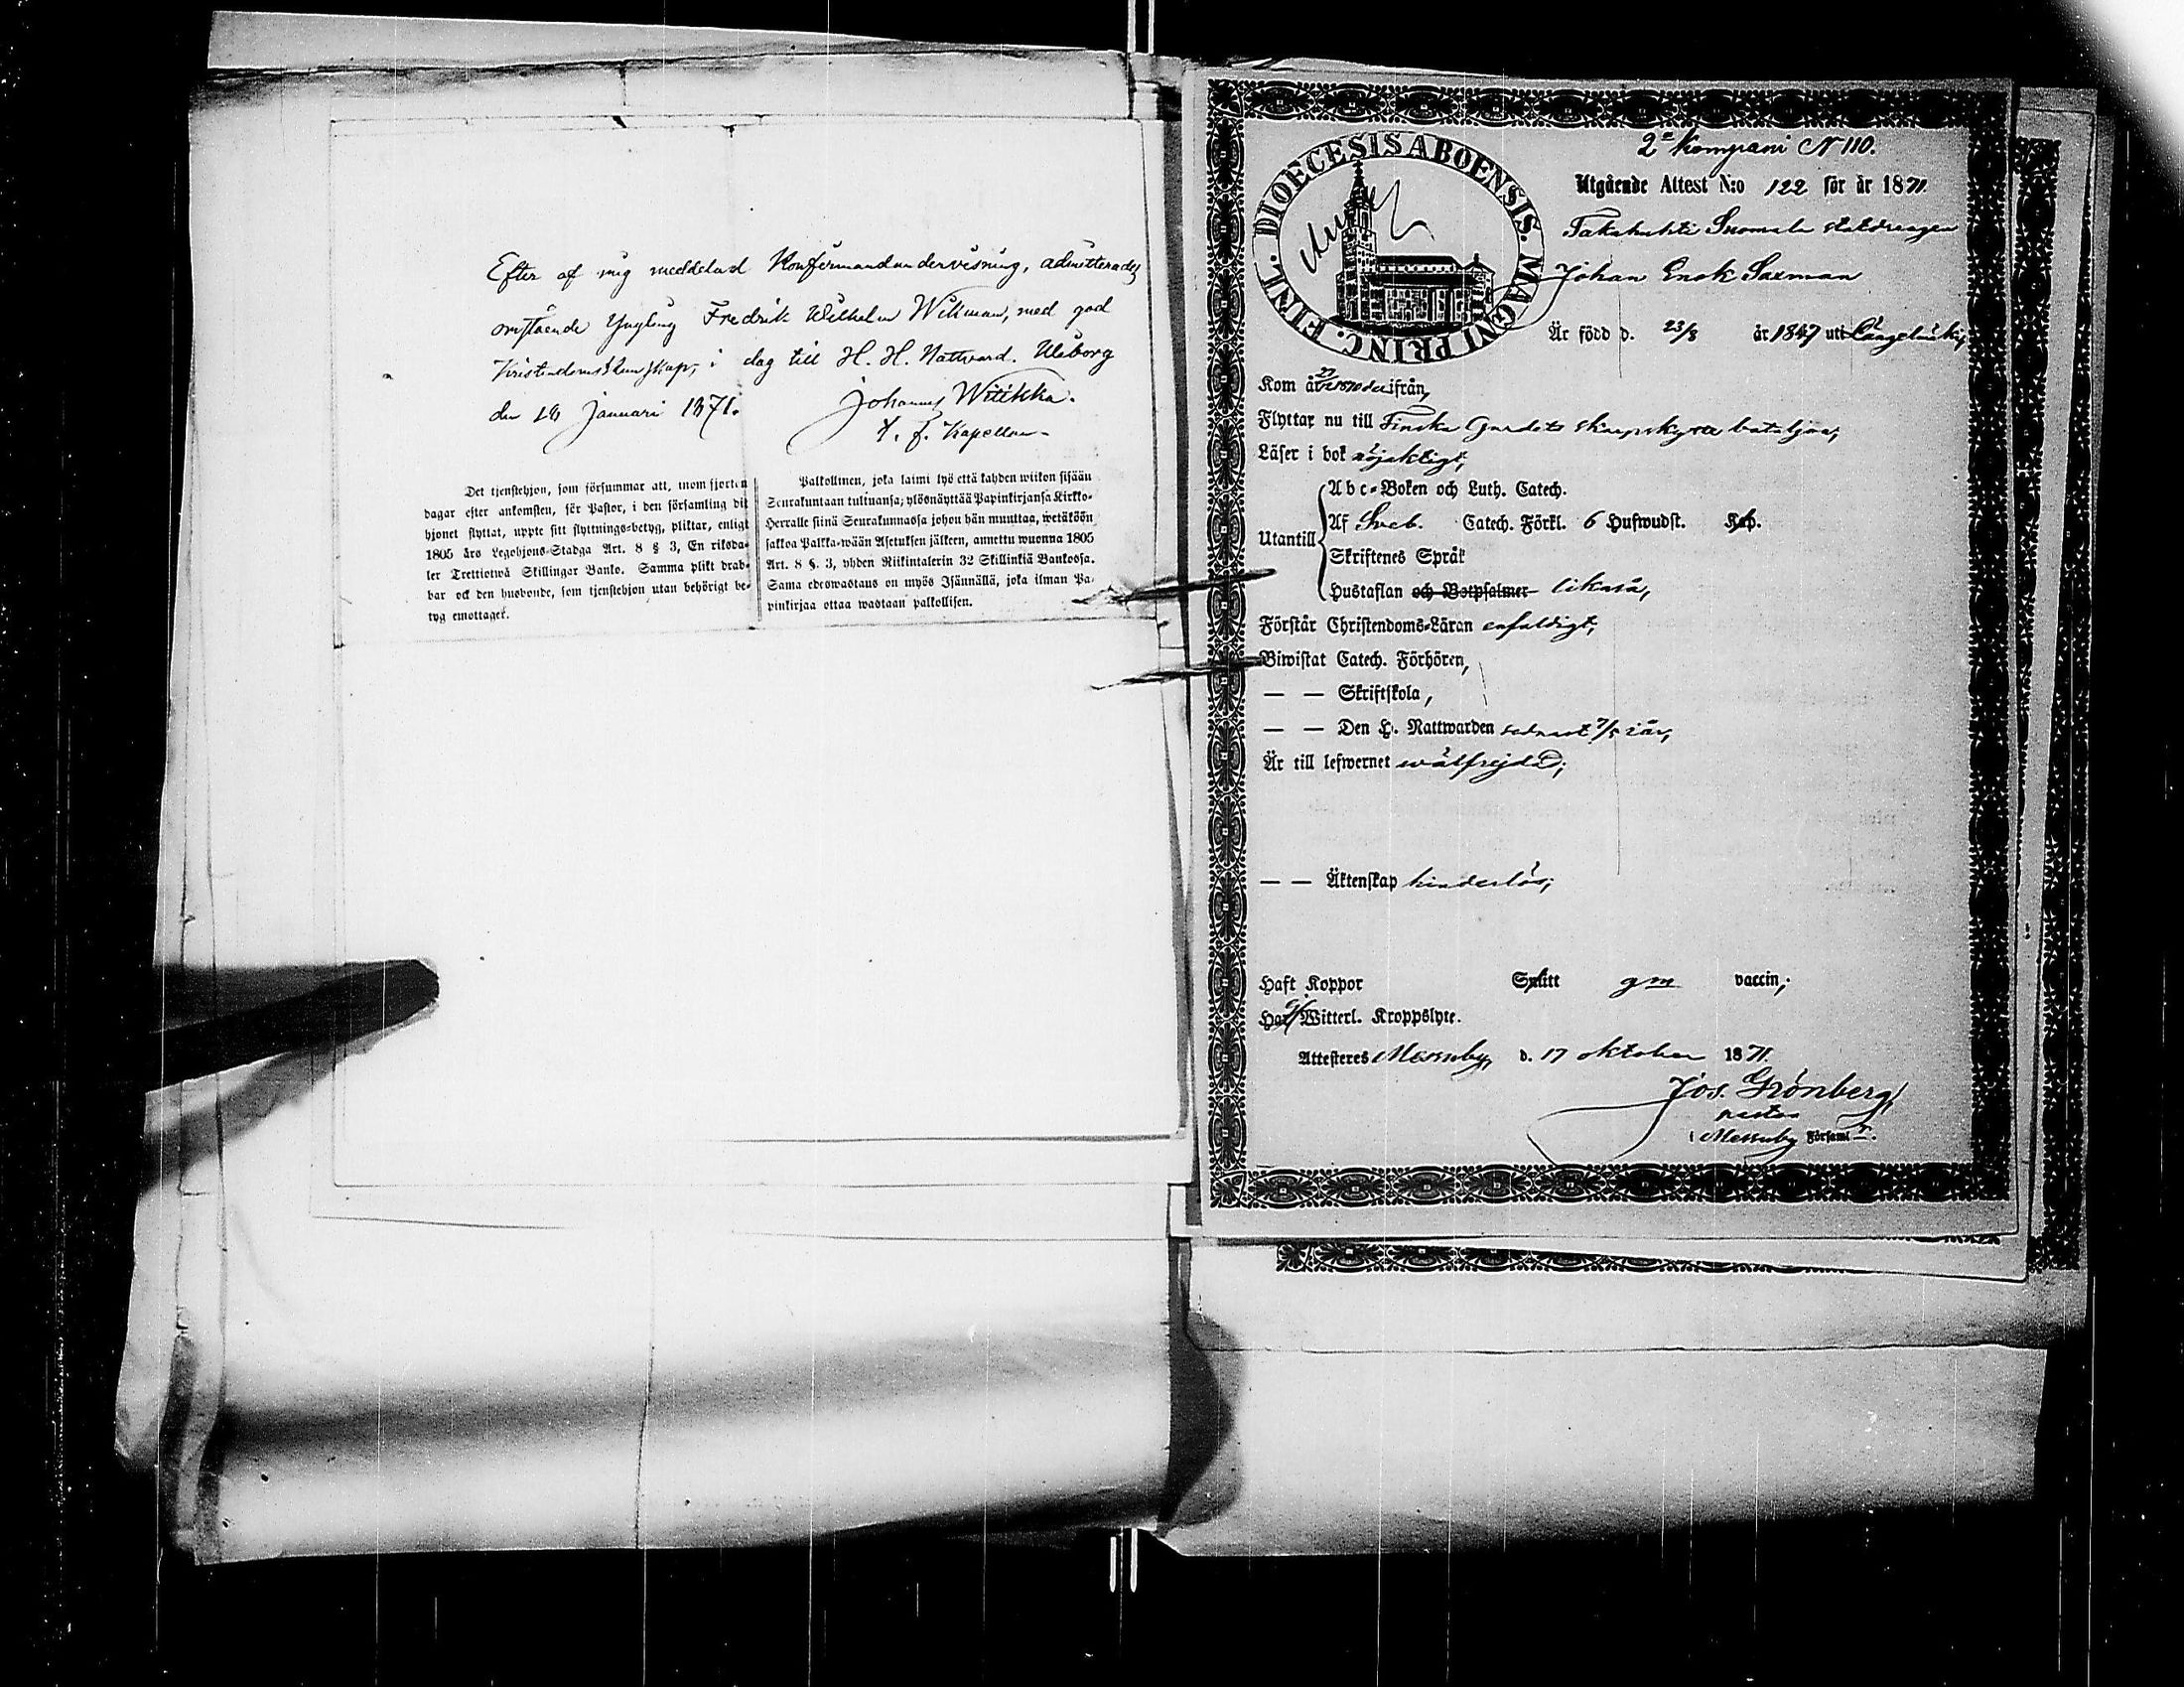 Efter af mig meddelad Konfirmandundervisning, admitterades
omstående Yngling Fredrik Wilhelm Wikman, med god
Kristendomskunskap, i dag till H. H. Nattvard. Uleborg
den 18 Januari 1871.
Johannes Witikka.
t. f. Kapellan
Det tjenstehjon, som försummar att, inom fjorton
dagar efter ankomsten, för Pastor, i den församling dit
hjonet flyttat, uppte sitt flyttnings-betyg, pliktar, enligt
1805 års Legohjons-Stadga Art. 8 § 3, En riksda-
ler Trettiotwå Skillingar Banko. Samma plikt drab-
bar ock den husbonde, som tjenstehjon utan behörigt be-
tyg emottaget.
Palkollinen, joka laimi lyö että kahden wiikon sisään
Seurakuntaan tultuansa; ylösnäyttää Papinkirjansa Kirkko-
Herralle siinä Seurakunnassa johon hän muuttaa, wetäköön
sakkoa Palkka-wään Asetuksen jälkeen, annettu wuonna 1805
Art. 8 §. 3, yhden Riikintalerin 32 Skillinkiä Bankossa.
Sama edeswastaus on myös Isännällä, joka ilman Pa-
pinkirjaa ottaa wastaan palkollisen.
2a Kompani N 110.
DIOECESIS ABOENSIS. MAGNI PRINC. FINL.
Utgående Attest N:o 122 för år 1871.
Takahuhti Suomela statdrengen
Johan Enok Saxman
Är född d. 23/8 år 1847 uti Längelmäki,
Kom år 1870 ifrån,
Flyttar nu till Finska Gardets skarpskytte bataljon,
Läser i bok nöjaktigt,
Utantill
Abc-Boken och Luth. Catech.
Af Sveb. Catech. Förkl. 6 Hufwudst. Kap.
Skriftenes Språk
Hustaflan och Botpsalmer likaså,
Förstår Christendoms-Läran enfaldigt,
Biwistat Catech. Förhören,
— — Skriftskola,
— — Den H. Nattwarden sednast 7/5 i år,
Är till lefwernet wälfrejdad;
— — Äktenskap hinderlös;
Haft Koppor Smitt gm vaccin;
Har Witterl. Kroppslyte.
Attesteres Messuby, d. 17 oktober 1871.
Jos. Grönberg,
pastor
i Messuby Församl.